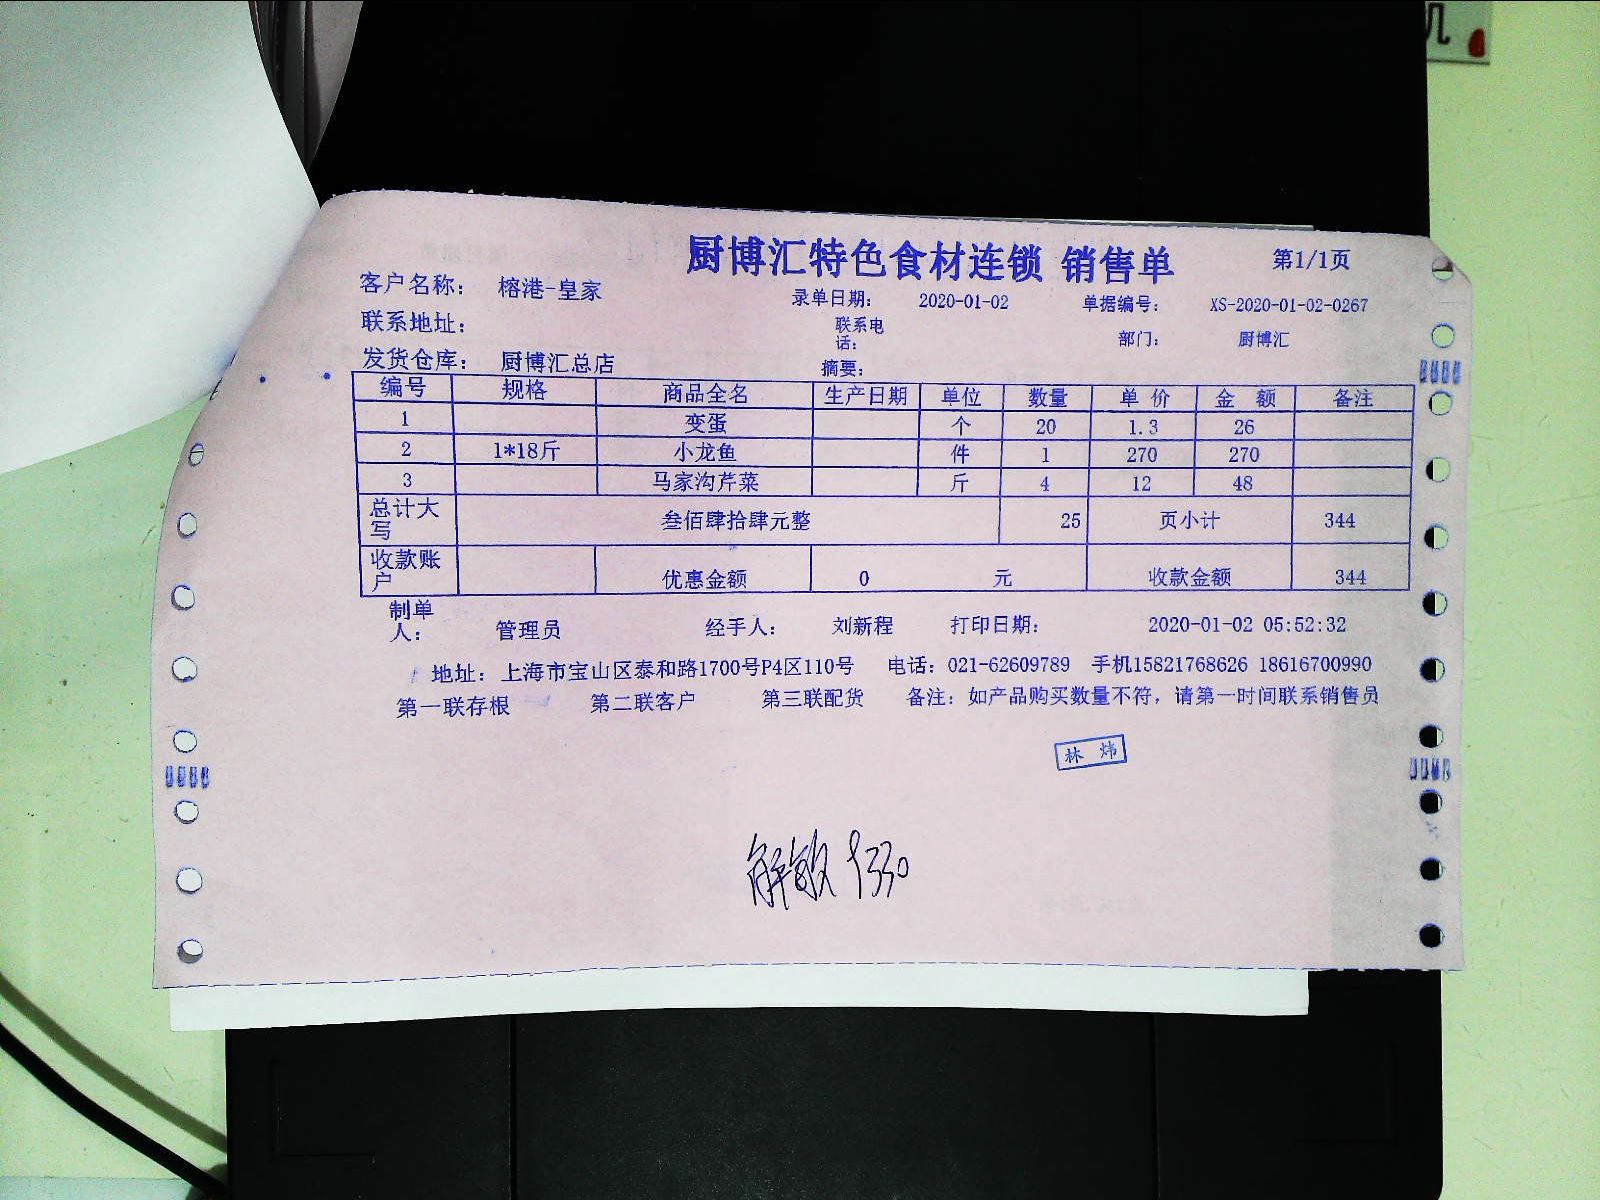 厨博汇特色食材连锁 销售单 第1/1页
客户名称： 榕港-皇家 录单日期： 2020-01-02 单据编号： XS-2020-01-02-0267
联系地址： 联系电话： 部门： 厨博汇
发货仓库： 厨博汇总店 摘要：
编号 规格 商品全名 生产日期 单位 数量 单 价 金 额 备注
1 变蛋 个 20 1.3 26
2 1*18斤 小龙鱼 件 1 270 270
3 马家沟芹菜 斤 4 12 48
总计大写 叁佰肆拾肆元整 25 页小计 344
收款账户 优惠金额 0 元 收款金额 344
制单人： 管理员 经手人： 刘新程 打印日期： 2020-01-02 05:52:32
地址：上海市宝山区泰和路1700号P4区110号 电话：021-62609789 手机15821768626 18616700990
第一联存根 第二联客户 第三联配货 备注：如产品购买数量不符，请第一时间联系销售员
林 炜